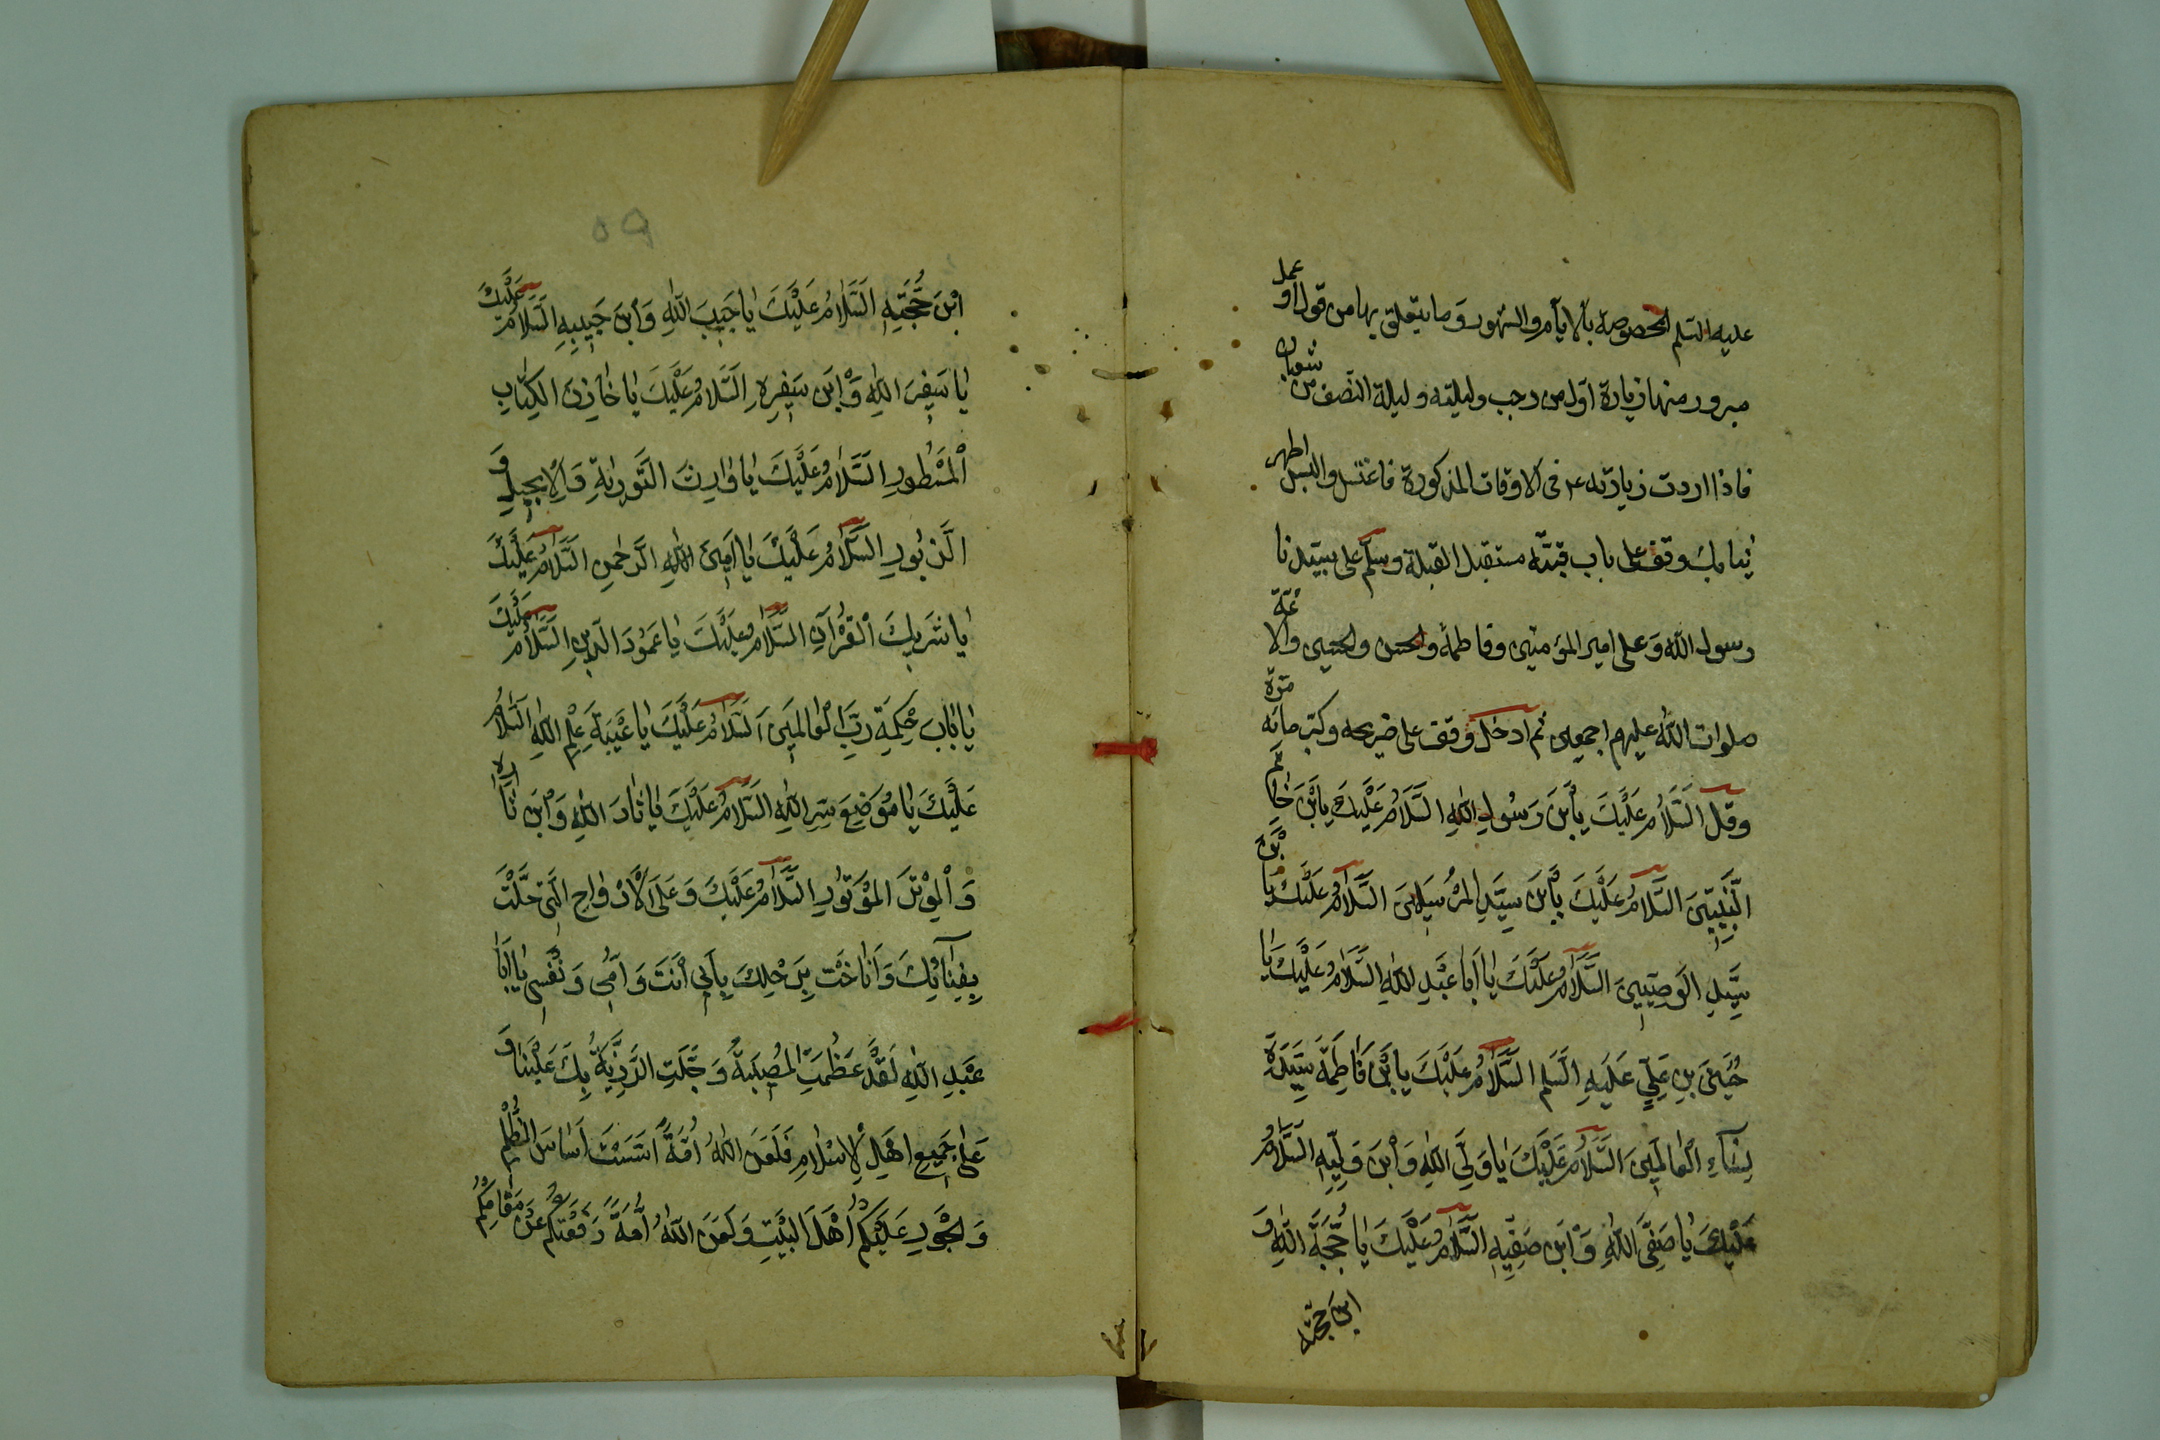 عليه السلم المخصوصة بالايام والشهور وما يتعلق بها من قول او عمل
مبرور منها زيارة اول من رجب وليلته وليلة النصف من شعبان
فاذا اردت زيارته ع م في الاوقات المذكورة فاغتسل والبس اطهر
ثيابك وقف على باب قبته مستقبل القبلة وسلم على سيدنا
رسول الله وعلى امير المؤمنين وفاطمة والحسن والحسين والائمة
صلوات الله عليهم اجمعين ثم ادخل وقف على ضريحه وكبر مائه مرة
وقل اَلسَّلاٰمُ عَلَيْكَ يابْنَ رَسُولِ اللهِ السَّلاٰمُ عَلَيْكَ يابْنَ خٰاتَمِ
النَّبِيّينَ السَّلاٰمُ عَلَيْكَ يابْنَ سَيِّدِ المُرْسَلينَ السَّلاٰمُ عَلَيْكَ يَابْنَ
سَيِّدِ الْوَصِيّينَ السَّلاٰمُ عَلَيْكَ يٰا اَبٰا عَبْدِ اللهِ السَّلاٰمُ عَلَيْكَ يٰا
حُسَيْنَ بْنِ عَلِيٍّ عَلَيْهِ السَّلم السَّلاٰمُ عَلَيْكَ يابْنَ فٰاطِمَةَ سَيِّدَةِ
نِسٰآءِ الْعٰالَمينَ السَّلاٰمُ عَلَيْكَ يٰا وَلِيَّ اللهِ وَابْنَ وَلِيِّهِ السَّلاٰمُ
عَلَيْكَ يٰا صَفِيَّ اللهِ وَابْنَ صَفِيِّهِ السَّلاٰمُ عَلَيْكَ يٰا حُجَّةَ اللهِ وَ
ابن حجته
٥٩
ابْنَ حُجَّتِهِ السَّلاٰمُ عَلَيْكَ يٰا حَبيبَ اللهِ وَابْنَ حَبيبِهِ السَّلاٰمُ عَلَيْكَ
يٰا سَفيرَ اللهِ وَابْنَ سَفيرِهِ السَّلاٰمُ عَلَيْكَ يٰا خٰازِنَ الكِتٰابِ
الْمَسْطُورِ السَّلاٰمُ عَلَيْكَ يٰا وٰارِثَ التَّوْرٰيةِ وَالْاِنْجيلِ وَ
الزَّبُورِ السَّلاٰمُ عَلَيْكَ يٰا اَمينَ اللهِ الرَّحْمٰنِ السَّلاٰمُ عَلَيْكَ
يٰا شَريكَ الْقُرْآنِ السَّلاٰمُ عَلَيْكَ يٰا عَمُودَ الدّينِ السَّلاٰمُ عَلَيْكَ
يٰا بٰابَ حِكْمَةِ رَبِّ الْعٰالَمينَ اَلسَّلاٰمُ عَلَيْكَ يٰا عَيْبَةَ عِلْمِ اللهِ السَّلاٰمُ
عَلَيْكَ يٰا مَوْضِعَ سِرِّ اللهِ السَّلاٰمُ عَلَيْكَ يٰا ثٰارَ اللهِ وَابْنَ ثٰارِهِ
وَالْوِتْرَ المَوْتُورِ السَّلاٰمُ عَلَيْكَ وَعَلَى الْاَرْوٰاحِ الَّتي حَلَّتْ
بِفِنٰآئِكَ وَاَنٰاخَتْ بِرَحْلِكَ بِاَبي اَنْتَ وَاُمّي وَنَفْسي يٰا اَبٰا
عَبْدِ اللهِ لَقَدْ عَظُمَتِ المُصيبَةُ وَجَلَّتِ الرَّزِيَّةُ بِكَ عَلَيْنٰا وَ
عَلىٰ جَميعِ اَهْلِ الْاِسْلاٰمِ فَلَعَنَ اللهُ اُمَّةً اَسَّسَتْ اَسٰاسَ الظُّلْمِ
وَالجَوْرِ عَلَيْكُمْ اَهْلَ البَيْتِ وَلَعَنَ اللهُ اُمَّةً دَفَعَتْكُمْ عَنْ مَقٰامِكُمْ